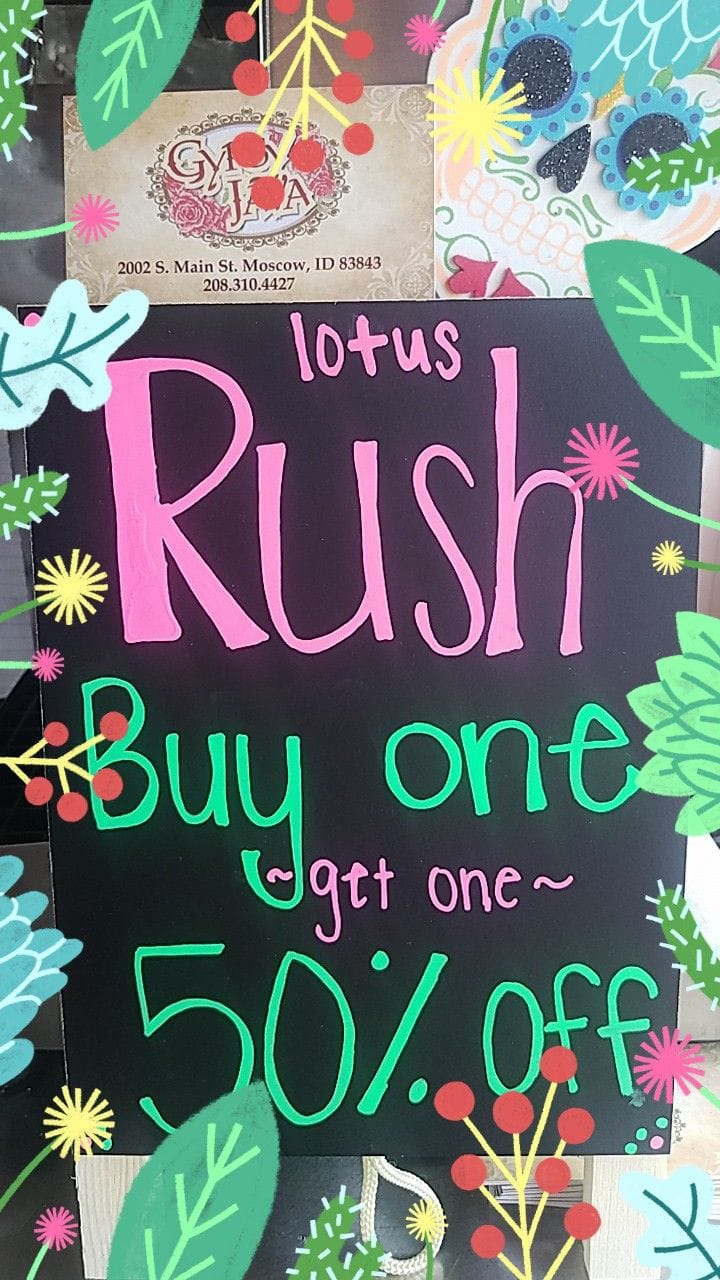 GYPSY
JAVA
2002 S. Main St. Moscow, ID 83843
208.310.4427
lotus
Rush
Buy one
~get one~
50% off